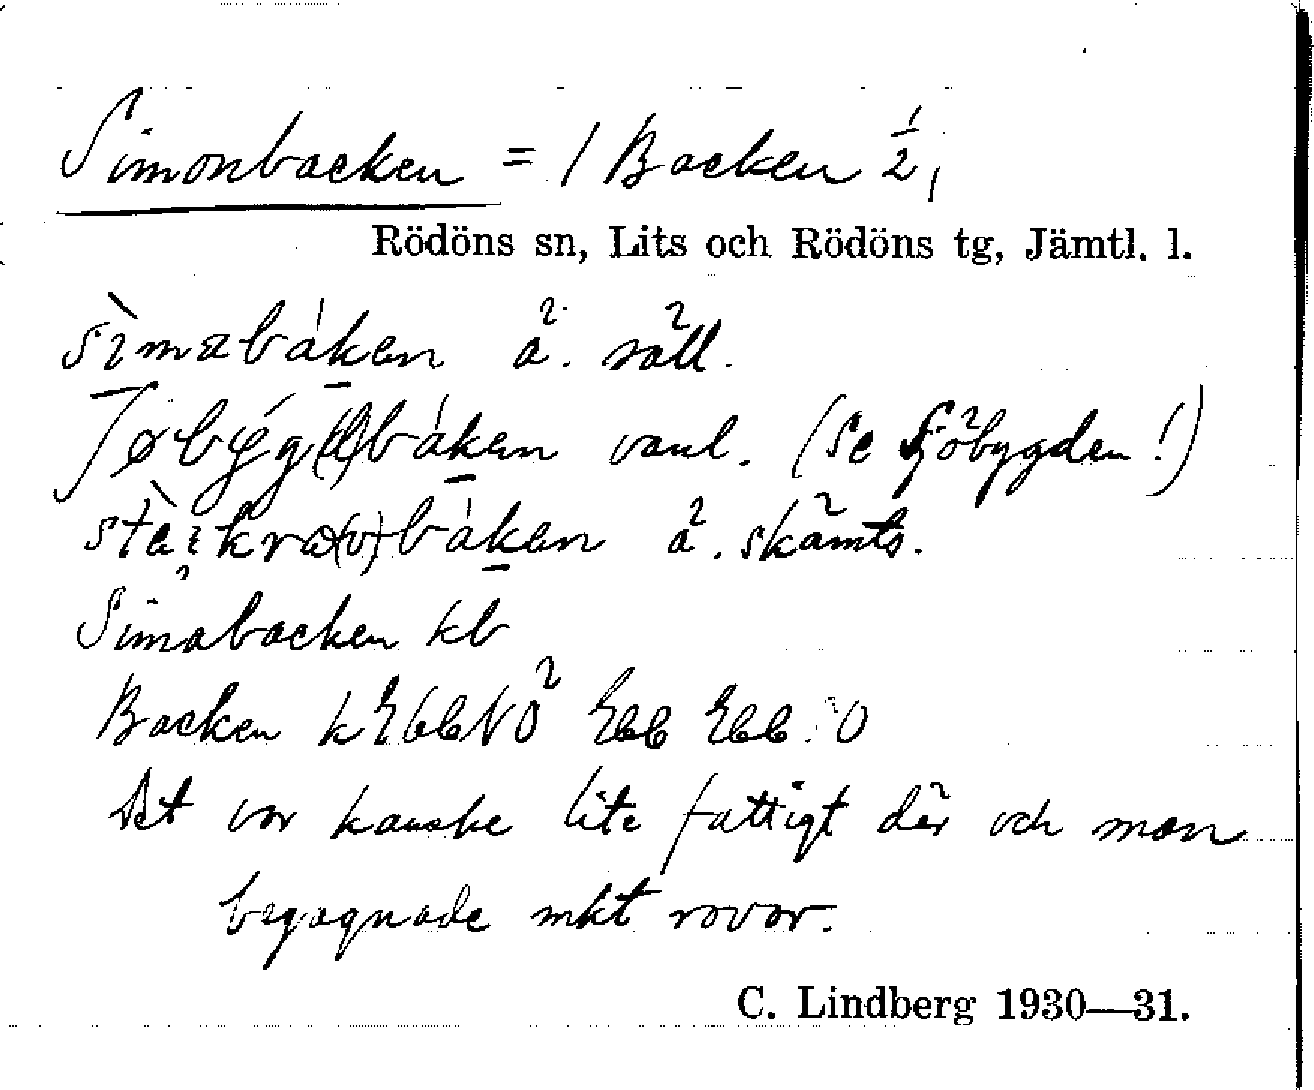 Simonbacken = / Backen ½,
Rödöns sn, Lits och Rödöns tg, Jämtl. l.
sìmabáken ä. säll.
báken vanl. (Se Sjöbygden!)
stàikra(v)báken ä. skämts.
Simabacken kb
Backen
Det var kanske lite fattigt där och man
begagnade mkt rovor.
C. Lindberg 1930—31.